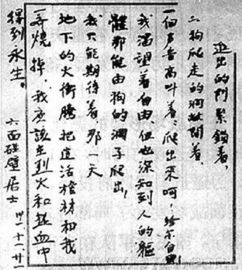 進出的門緊鎖着,
狗爬走的洞敞開着,
一個声音高叫着,爬出来呵,給尔自由!
我渴望着自由,但也深知到人的軀
體那能由狗的洞子爬出!
我只能期待着,那一天
地下的火衝騰,把這活棺材和我
一齊燒掉,我應該在烈火和熱血中
得到永生。
六面碰壁居士 十一·廿一